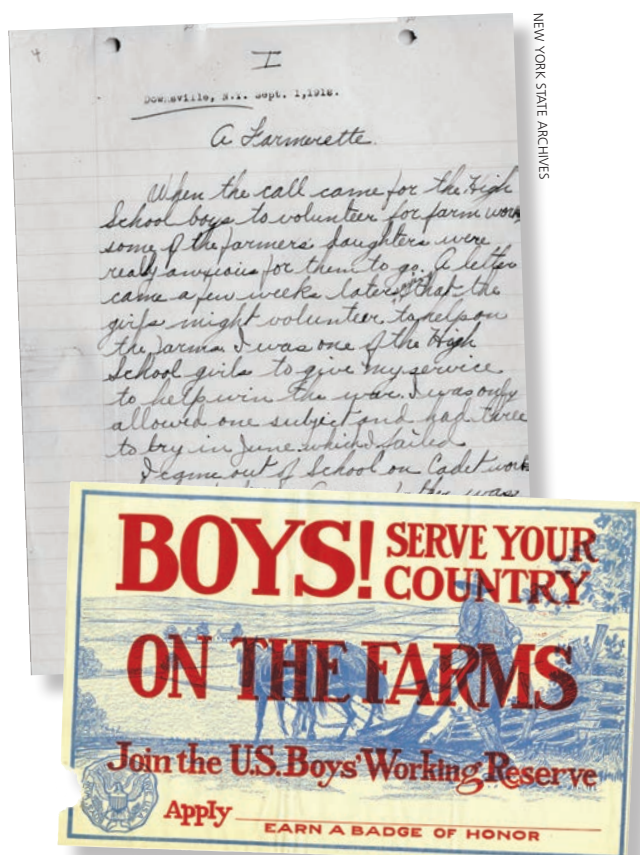 4
I
Downsville, N.Y. Sept. 1,1918.
A Farmerette.
When the call came for the High
School boys to volunteer for farm work
some of the farmers' daughters were
really anxious for them to go. A letter
came a few weeks later that the
girls might volunteer to help on
the farms. I was one of the High
School girls to give my service
to help win the war. I was only
allowed one subject and had three
to try in June which I failed
I came out of School on Cadet work
was
NEW YORK STATE ARCHIVES
BOYS! SERVE YOUR
COUNTRY
ON THE FARMS
Join the U.S. Boys' Working Reserve
Apply
EARN A BADGE OF HONOR